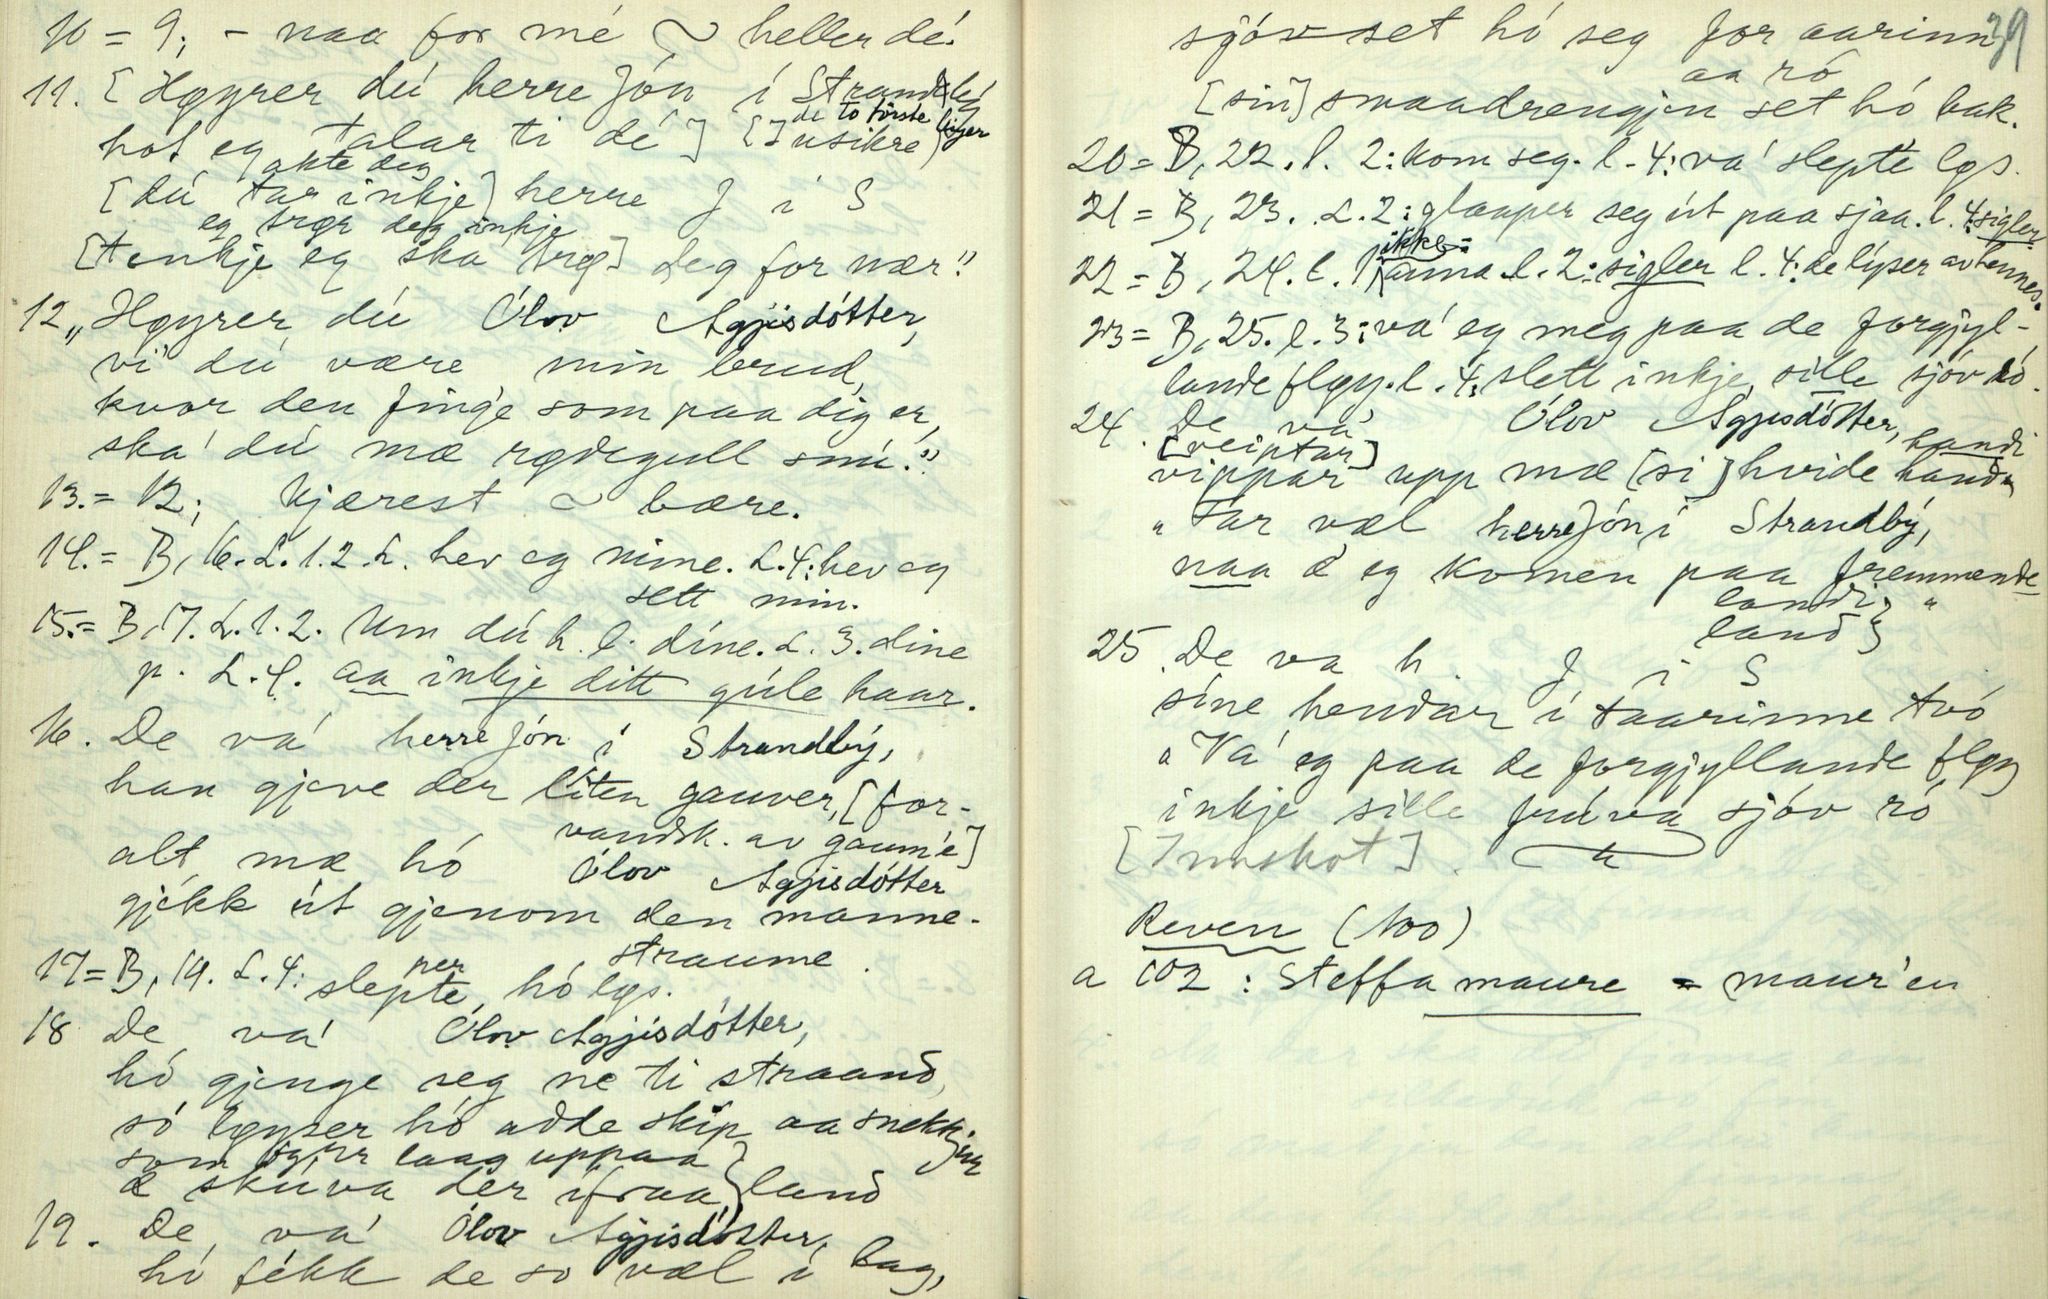 10 = 9; - naa for mé ~ heller dé.
11. [Høyrer dú herre Jón í Strandbý
de to første linjer
hot eg talar ti dé] [] usikre
akte deg
[dú tar inkje] herre J í S
eg trør deg inkje
[tenkje eg ska trø] deg for nær."
12. „Høyrer dú Ólov Agjisdótter,
vi' dú være min brud,
kvor den fing'e som paa dig er,
ska' dú mæ rødegull snú."
13. = 12; kjærest ~ bære.
14. = B, 16. L. 1. 2. L. hev eg nime. L. 4: hev eg
sett min.
15. = B, 17. L. 1. 2. Um dú h. l. díne. L. 3. dine
p. L. 4. aa inkje ditt gúle haar.
16. De vá' herre Jón í Strandbý,
han gjeve der líten gauver, [for-
vandsk. av gaum'e]
alt mæ hó Ólov Agjisdótter
gjékk út gjenom den manne-
straume.
17 = B, 19. L. 4: slepte, hó lgs.
per
18 De vá' Ólov Agjisdótter,
hó gjenge seg ne ti straand,
só løyser hó adde skip aa snekkjur
som laag uppaa }
æ skúva der ífraa } land
19. De vá' Ólov Agjisdótter,
hó fékk de so væl í lag,
39
sjóv set hó seg for aarinn
aa ró
[sin] smaadrengjen set hó bak.
20 = B, 22. l. 2: kom seg. l. 4: vá' slepte lgs.
21 = B, 23. L. 2: glaaper seg út paa sjaa. l. 4: sigler
ikke:
22 = B, 24. l. 1 anna. l. 2: sigler l. 4: de lýser av hennes.
23 = B, 25. l. 3: vá' eg meg paa de forgjyl-
lande fløy. l. 4: slett inkje sille sjóv ró.
24. De vá' Ólov Agjisdótter,
[veiptar] handi
vippar upp mæ [si] hvide hand
„Far væl herre Jón í Strandbý,
naa æ eg komen paa fremmende
landi } "
land }
25. De va h. J í S
síne hendar í taarinne tvó
„Vá' eg paa de forgjyllande fløy
inkje sille frúva sjóv ró
[Innskot]. "
Reven (100)
a 102: Steffa maure = maur'en